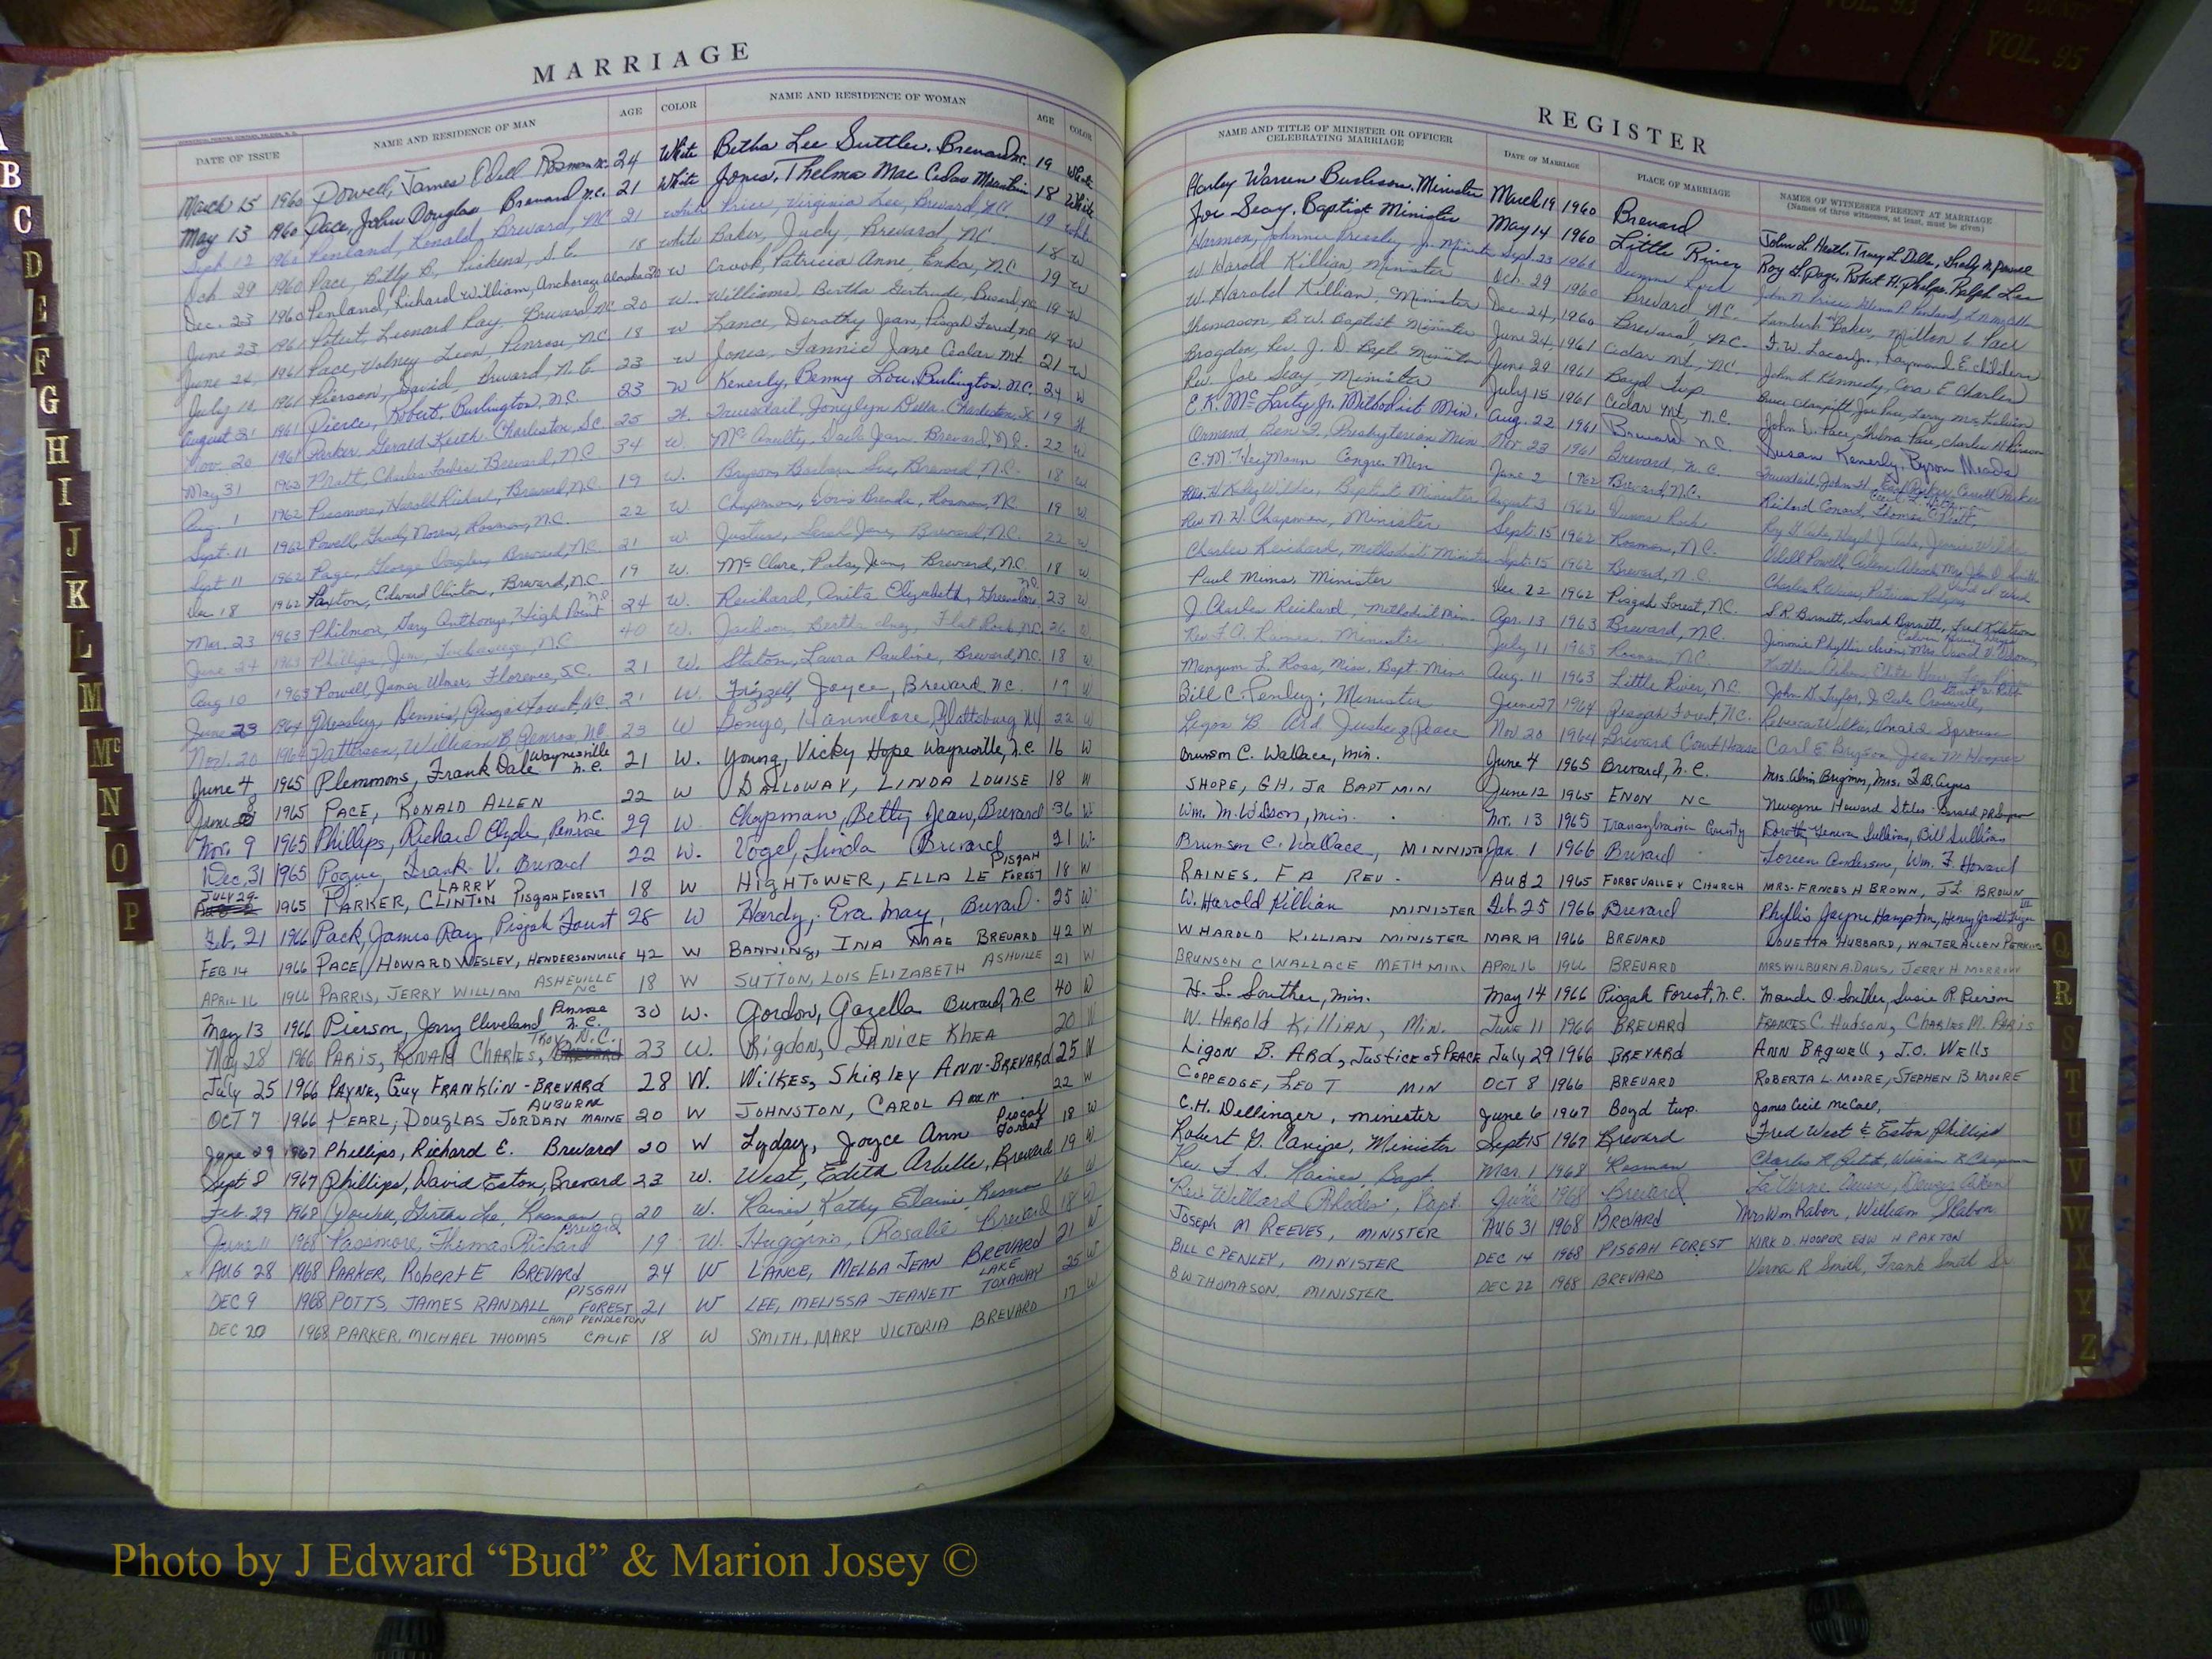 MARRIAGE
DATE OF ISSUE NAME AND RESIDENCE OF MAN AGE COLOR NAME AND RESIDENCE OF WOMAN AGE COLOR
March 15 1960 Powell, James Odell Rosman N.C. 24 White Betha Lee Suttler, Brevard N.C. 19 White
May 13 1960 Pace, John Douglas Brevard N.C. 21 White Jones, Thelma Mae Cedar Mountain 18 White
Sept. 12 1960 Penland, Ronald, Brevard, NC 21 white Price, Virginia Lee, Brevard, N.C. 19 white
Oct 29 1960 Pace, Billy B. Pickens, S.C. 18 white Baker, Judy, Brevard NC. 18 w
Dec. 23 1960 Penland, Richard William, Anchorage Alaska 20 w Crook, Patricia Anne, Enka, NC 19 w
June 23 1961 Poteet, Leonard Ray, Brevard NC 20 w. Williams, Bertha Gertrude, Brevard, NC 19 w
June 26, 1961 Pace, Volney Leon, Penrose, NC 18 w Lance, Dorothy Jean, Pisgah Forest, NC 19 w
July 10 1961 Pierson, David, Brevard, N.C. 23 w Jones, Fannie Jane Cedar Mt. 21 w
August 21 1961 Pierce, Robert, Burlington, N.C. 23 W Kenerly, Benny Lou, Burlington, N.C. 24 W
Nov. 20 1961 Parker, Gerald Keith, Charleston, S.C. 25 Truesdail, Jonylyn Della, Charleston, SC 19
May 31 1962 Pratt, Charles Forbes Brevard, N.C. 34 W. McAnulty, Gail Jean, Brevard, N.C. 22 W
Aug. 1 1962 Passmore, Harold Richard, Brevard, N.C. 19 W. Bryson, Barbara Sue, Brevard, N.C. 18 w
Sept. 11 1962 Powell, Grady Noren, Rosman, N.C. 22 W. Chapman, Doris Brenda, Rosman, NC 19 w
Sept 11 1962 Page, George Douglas, Brevard, N.C. 21 w. Justus, Sarah Jane, Brevard, N.C. 22 w
Dec. 18 1962 Paxton, Edward Clinton, Brevard, N.C. 19 W. McClure, Patsy Jean, Brevard, N.C. 18 w
Mar. 23 1963 Philmon, Gary Anthony, High Point N.C. 24 W. Reichard, Anita Elizabeth, Greensboro, N.C. 23 W
June 24 1963 Phillips, Jim, Tuckasegee, N.C. 40 W. Jackson, Bertha, Flat Rock, N.C. 26 w
Aug 10 1963 Powell, James Ulmer, Florence, S.C. 21 W. Staton, Laura Pauline, Brevard, N.C. 18 w
June 23 1964 Pressley, Dennis, Pisgah Forest, NC. 21 W. Frizzell, Joyce, Brevard N.C. 17 W
Nov. 20 1964 Patterson, William B. Penrose, N.C. 23 W Gonyo, Hannelore, Plattsburg NY 22 W
June 4, 1965 Plemmons, Frank Dale Waynesville N.C. 21 W. Young, Vicky Hope Waynesville, N.C. 16 W
June 8 1965 PACE, RONALD ALLEN 22 W DALLOWAY, LINDA LOUISE 18 W
Nov. 9 1965 Phillips, Richard Clyde, Penrose N.C. 29 W. Chapman, Betty Jean, Brevard 36 W
Dec. 31 1965 Pogue, Frank V. Brevard 22 W. Vogel, Linda Brevard 21 W.
JULY 29 1965 PARKER, CLINTON LARRY PISGAH FOREST 18 W HIGHTOWER, ELLA LE PISGAH FOREST 18 W
Feb. 21 1966 Pack, James Ray, Pisgah Forest 28 W Hardy, Eva May, Brevard. 25 W
FEB 14 1966 PACE, HOWARD WESLEY, HENDERSONVILLE 42 W BANNING, INA MAE BREVARD 42 W
APRIL 16 1966 PARRIS, JERRY WILLIAM ASHEVILLE NC 18 W SUTTON, LOIS ELIZABETH ASHVILLE 21 W
May 13 1966 Pierson, Jerry Cleveland Penrose N.C. 30 W. Gordon, Gazella Brevard, N.C 40 W
May 28 1966 PARIS, RONALD CHARLES, TROY, N.C. 23 W. Rigdon, JANICE RHEA 20 W
July 25 1966 PAYNE, Guy FRANKLIN - BREVARD 28 W. WILKES, SHIRLEY ANN - BREVARD 25 W
OCT 7 1966 PEARL, DOUGLAS JORDAN AUBURN MAINE 20 W JOHNSTON, CAROL ANN. 22 W
June 29 1967 Phillips, Richard E. Brevard 20 W Lyday, Joyce Ann Pisgah Forest 18 W
Sept 8 1967 Phillips, David Eston, Brevard 23 W. West, Edith Arbelle, Brevard 19 W
Feb. 29 1968 Powell, Girtha Lee, Rosman 20 W. Raines, Kathy Elaine, Rosman 16 W
June 11 1968 Passmore, Thomas Richard Brevard 19 W. Huggins, Rosalie Brevard 18 W
AUG 28 1968 PARKER, ROBERT E BREVARD 24 W LANCE, MELBA JEAN BREVARD 21 W
DEC 9 1968 POTTS, JAMES RANDALL PISGAH FOREST 21 W LEE, MELISSA JEANETT LAKE TOXAWAY 25 W
DEC 20 1968 PARKER, MICHAEL THOMAS CAMP PENDLETON CALIF 18 W SMITH, MARY VICTORIA BREVARD 17 W
REGISTER
NAME AND TITLE OF MINISTER OR OFFICER CELEBRATING MARRIAGE DATE OF MARRIAGE PLACE OF MARRIAGE NAMES OF WITNESSES PRESENT AT MARRIAGE
(Names of three witnesses, at least, must be given)
Harley Warren Burleson, Minister March 19 1960 Brevard John L. Heath, Tracy L. Dills,
Joe Seay, Baptist Minister May 14 1960 Little River Roy G. Page, Robert H. Phelps, Ralph Lee
Harmon, Johnnie Pressley, Jr. Minister Sept. 23 1960 John N. Price, Glenn P. Penland,
W. Harold Killian, Minister Oct. 29 1960 Brevard NC. Lambert Baker, Milton E. Pace
W. Harold Killian, Minister Dec. 24, 1960 Brevard, N.C. Raymond E. Childers
Thomason, B.W. Baptist Minister June 24, 1961 Cedar Mt., NC. John L. Kennedy, Cora E. Charles
Bragdon, Rev. J. D. Bapt. Minister June 29 1961 Boyd Twp
Rev. Joe Seay, Minister July 15 1961 Cedar Mt, N.C. John D. Pace, Thelma Pace, Charles H. Pierson
E. K. McLarty Jr. Methodist Min. Aug. 22 1961 Brevard N.C. Susan Kenerly, Byron Meads
Ormand, Ben F., Presbyterian Min Nov. 23 1961 Brevard, N.C. Truesdail, John H., Earl Parker, Carroll Parker
C.M. Heijmann Congre. Min June 2 1962 Brevard, N.C. Richard Conard, Thomas C. Pratt,
Baptist Minister August 3 1962
Rev. N. W. Chapman, Minister Sept. 15 1962 Rosman, N.C.
Charles Reichard, Methodist Minister Sept. 15 1962 Brevard, N.C.
Paul Mims, Minister Dec. 22 1962 Pisgah Forest, N.C. S.R. Burnett, Sarah Burnett,
J. Charles Reichard, Methodist Min. Apr. 13 1963 Brevard, N.C.
Rev. F. A. Raines, Minister July 11 1963 Rosman, N.C.
Mangum L. Ross, Miss. Bapt Min. Aug. 11 1963 Little River, N.C. John G. Taylor,
Bill C. Penley; Minister June 27 1964 Pisgah Forest, N.C. Rebecca Wilkie, Donald Sprouse
Ligon B. Ard Justice of Peace Nov 20 1964 Brevard Court House Carl E. Bryson, Jean M. Hooper
Brunson C. Wallace, Min. June 4 1965 Brevard, N.C. Mrs. Alvin Brigman, Mrs. F.B. Ayers
SHOPE, G.H. JR BAPT MIN June 12 1965 ENON NC
Wm. M. Wilson, Min. Nov. 13 1965 Transylvania County Dorothy Geneva Sullivan, Bill Sullivan
Brunson C. Wallace, MINNISTER Jan. 1 1966 Brevard Loreen Anderson, Wm. F. Howard
RAINES, F A REV. AUG 2 1965 FORBE VALLEY CHURCH MRS. FRNCES H BROWN, J.L BROWN
W. Harold Killian MINISTER Feb. 25 1966 Brevard Phyllis Jayne Hampton,
W HAROLD KILLIAN MINISTER MAR 19 1966 BREVARD LOUETTA HUBBARD, WALTER ALLEN PERKINS
BRUNSON C WALLACE METH MIN. APRIL 16 1966 BREVARD MRS WILBURN A. DAVIS, JERRY H MORROW
H. L. Souther, Min. May 14 1966 Pisgah Forest, N.C. Maude O. Souther, Susie R. Pierson
W. HAROLD KILLIAN, Min. JUNE 11 1966 BREVARD FRANCES C. HUDSON, CHARLES M. PARIS
LIGON B. ARD, JUSTICE of PEACE July 29 1966 BREVARD ANN BAGWELL, J.O. WELLS
COPPEDGE, LEO T MIN OCT 8 1966 BREVARD ROBERTA L. MOORE, STEPHEN B MOORE
C.H. Dellinger, minister June 6 1967 Boyd twp. James Cecil McCall,
Robert G. Canipe, Minister Sept 15 1967 Brevard Fred West & Eston Phillips
Rev. F. A. Raines, Bapt. Mar. 1 1968 Rosman
Rev. Willard Rhodes, Bapt June 1968 Brevard
JOSEPH M REEVES, MINISTER AUG 31 1968 BREVARD Mrs Wm Rabon, William Rabon
BILL C PENLEY, MINISTER DEC 14 1968 PISGAH FOREST KIRK D. HOOPER EDW H PAXTON
B W THOMASON, MINISTER DEC 22 1968 BREVARD Verna R Smith, Frank Smith Sr
B
C
D
E
F
G
H
I
J
K
L
M
Mc
N
O
P
Q
R
S
T
U
V
W
X
Y
Z
VOL. 95
Photo by J Edward “Bud” & Marion Josey ©